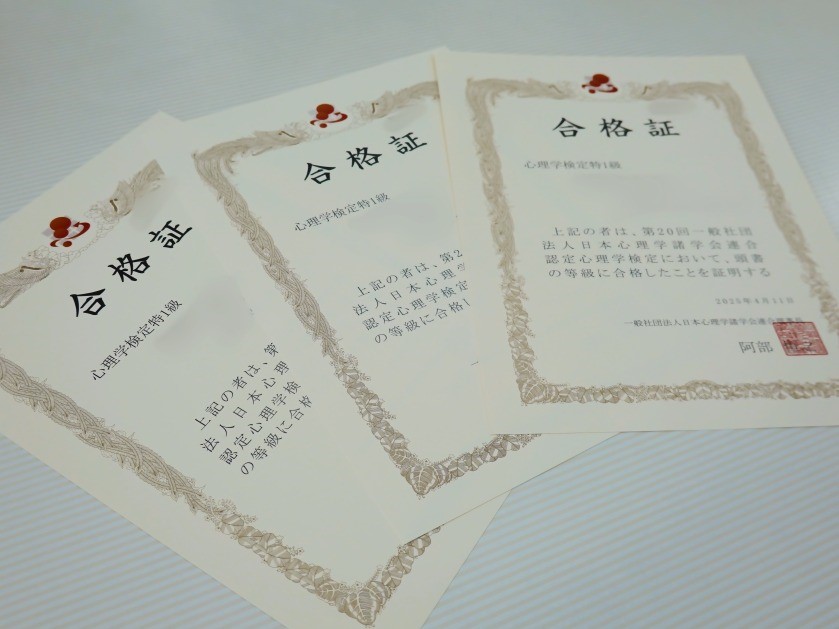 合格証
心理学検定特1級
上記の者は、第
法人日本心理
認定心理学検
の等級に合格
合格証
心理学検定特1級
上記の者は、第2
法人日本心理学
認定心理学検定
の等級に合格
合格証
心理学検定特1級
上記の者は、第20回一般社団
法人日本心理学諸学会連合
認定心理学検定において、頭書
の等級に合格したことを証明する
2025年4月11日
一般社団法人日本心理学諸学会連合
阿部